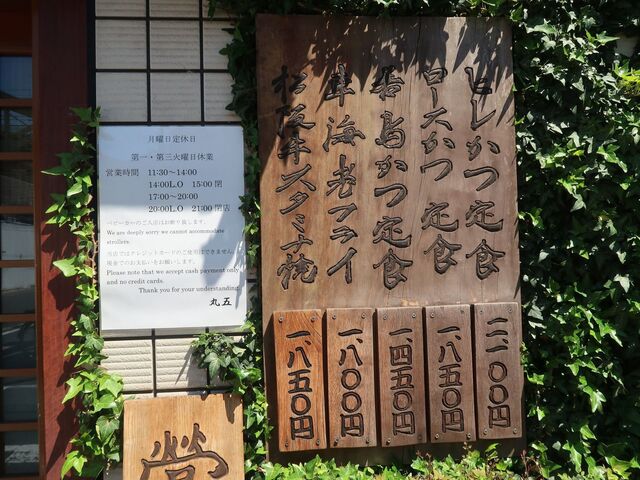 月曜日定休日
第一・第三火曜日休業
営業時間 11:30~14:00
14:00L.O 15:00閉
17:00~20:00
20:00L.O 21:00閉店
ベビーカーのご入店はお断り致します。
We are deeply sorry we cannot accommodate
strollers.
当店ではクレジットカードのご使用はできません
現金でのお支払いをお願いします。
Please note that we accept cash payment only
and no credit cards.
Thank you for your understanding.
丸五
ヒレかつ定食
二、一〇〇円
ロースかつ定食
一、八五〇円
若鳥かつ定食
一、四五〇円
車海老フライ
一、八〇〇円
松阪牛スタミナ焼
一、八五〇円
営